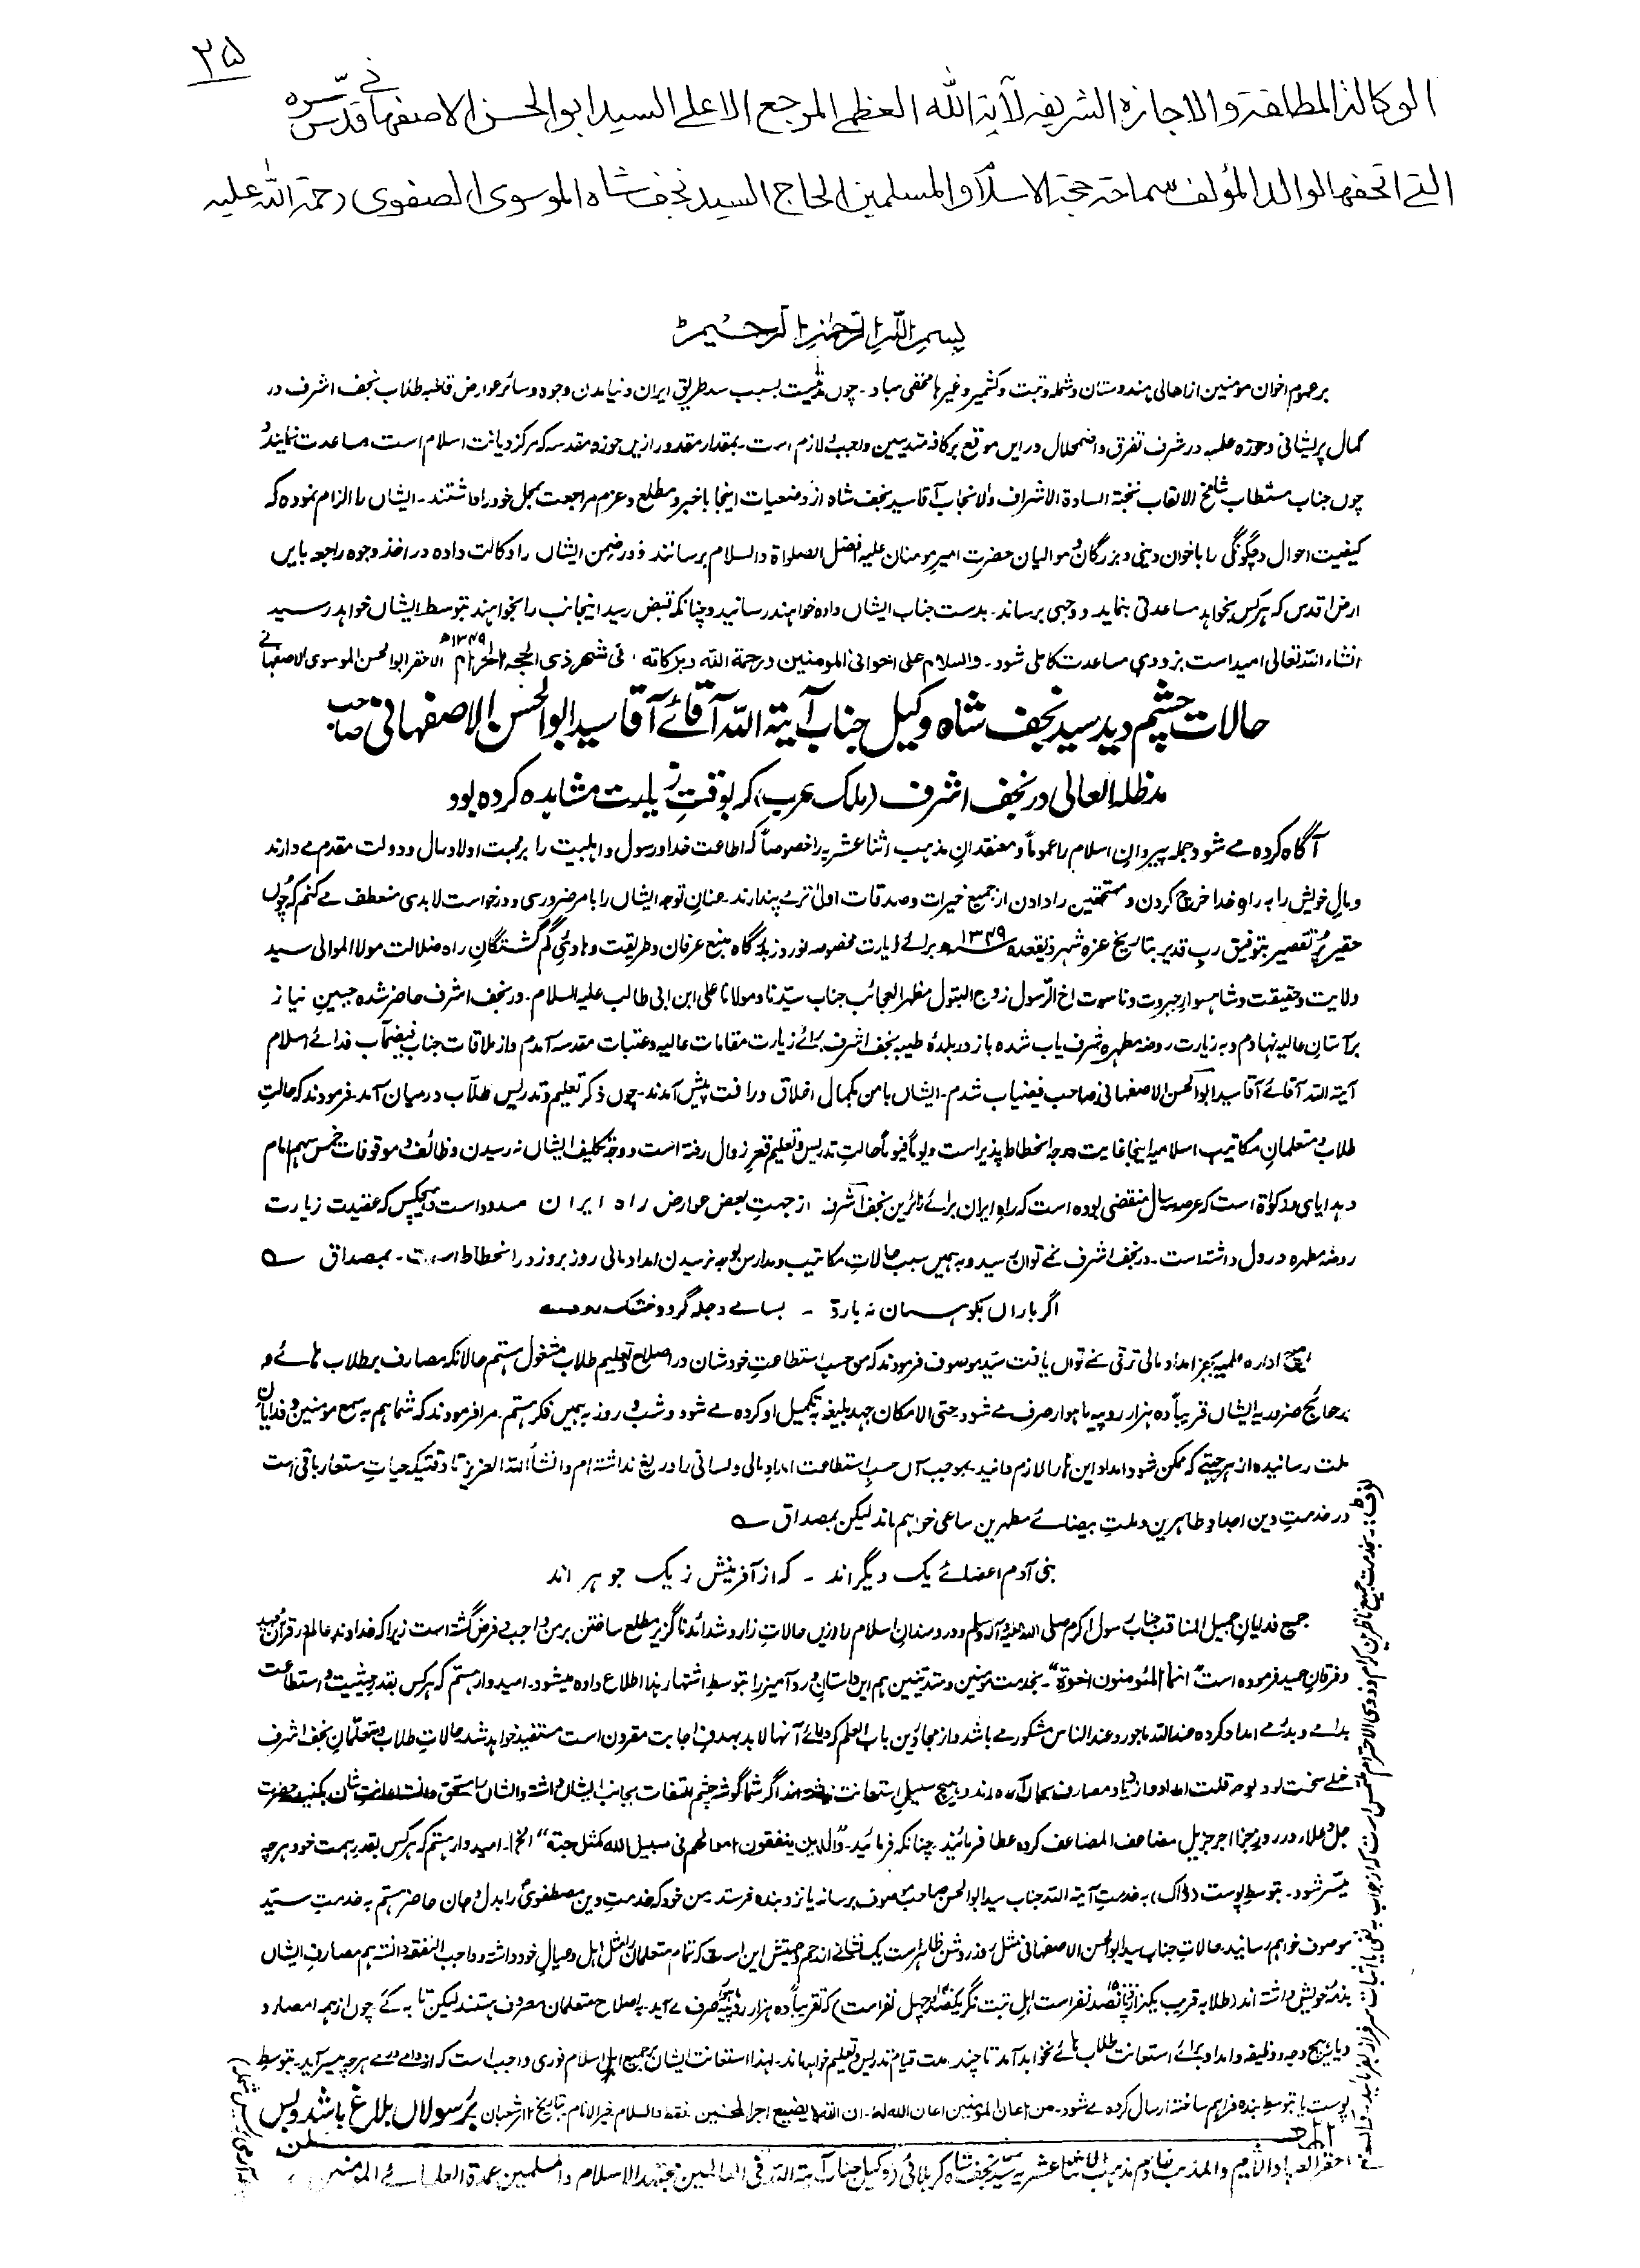 ۲۵
الوکالة المطلقة و الاجازه الشریفه لآیة الله العظمی المرجع الاعلی السید ابوالحسن الاصفهانی قدس سره
التی اتحفها الوالد المؤلف سماحة حجة الاسلام و المسلمین الحاج السید نجف شاه الموسوی الصفوی رحمة الله علیه
بسم الله الرحمن الرحیم
بر عموم اخوان مومنین از اهالی هندوستان و شمله و تبت و کشمیر و غیرها مخفی مباد۔ چوں بسبب سد طریق ایران و نیامدن وجوه و سائر عوارض قاطبه طلاب نجف اشرف در
کمال پریشانی و حوزه علمیه در شرف تفرق و اضمحلال در ایں موقع بر کافه متدینین واجب و لازم است۔ بمقدار مقدور ازیں حوزه مقدسه که مرکز دیانت اسلام است مساعدت نمایند و
چوں جناب مستطاب شامخ الالقاب نخبة السادة الاشراف آقا سید نجف شاه از وضعیات اینجا باخبر و مطلع و عزم مراجعت بمحل خود را داشتند۔ ایشاں را الزام نموده که
کیفیت احوال و چگونگی را باخوان دینی و بزرگان و موالیان حضرت امیر مومنان علیه افضل الصلواة و السلام برسانند و در ضمن ایشاں را وکالت داده در اخذ وجوه راجعه بایں
ارض اقدس که هر کس بخواهد مساعدتی بنماید و وجهی برساند۔ بدست جناب ایشاں داده خواهند رسانید و چنانکه قبض رسید اینجانب را بخواهند بتوسط ایشاں خواهد رسید
انشاء الله تعالی امید است بزودی مساعدت کاملی شود۔ والسلام علی اخوانی المومنین و رحمة الله و برکاته ، فی شهر ذی الحجه الحرام ۱۳۴۹ه الاحقر ابوالحسن الموسوی الاصفهانی
حالات چشم دید سید نجف شاه وکیل جناب آیتة الله آقائے آقا سید ابوالحسن الاصفهانی صاحب
مد ظله العالی در نجف اشرف (ملک عرب) که بوقتِ زیارت مشاهده کرده بود
آگاه کرده می شود جمله پیروانِ اسلام را عموماً و معتقدانِ مذهب اثنا عشریه را خصوصاً که اطاعت خدا و رسول و اهلبیت را بر محبت اولاد و مال و دولت مقدم می دارند
و مالِ خویش را به راهِ خدا خرچ کردن و مستحقین را دادن از جمیع خیرات و صدقات اولیٰ تر می پندارند۔ عنانِ توجه ایشاں را بامر ضروری و درخواست لابدی منعطف می کنم که چوں
حقیر پُر تقصیر بتوفیق ربِ قدیر بتاریخ غره شهر ذیقعده ۱۳۴۹ه برائے زیارت مخصوصه نوروز به گاه منبع عرفان و طریقت و هادئ گم گشتگانِ راهِ ضلالت مولا الموالی سید
ولایت و حقیقت و شاهسوارِ جبروت و ناسوت اخ الرسول زوج البتول مظهر العجائب جناب سیدنا و مولانا علی ابن ابی طالب علیه السلام۔ در نجف اشرف حاضر شده جبینِ نیاز
بر آستانِ عالیه نهادم و به زیارت روضه مطهره شرف یاب شده باز در بلدۂ طیبه نجف اشرف برائے زیارت مقامات عالیه و عتبات مقدسه آمدم و از ملاقات جناب فیضمآب فدائے اسلام
آیتة الله آقائے آقا سید ابوالحسن الاصفهانی صاحب فیضیاب شدم۔ ایشاں بامن بکمال اخلاق و رافت پیش آمدند۔ چوں ذکر تعلیم و تدریس طلاب درمیان آمد۔ فرمودند که حالتِ
طلاب و متعلمانِ مکاتیب اسلامیه اینجا غایت درجه انحطاط پذیر است و یوماً فیوماً حالتِ تدریس و تعلیم قعرِ زوال رفته است و وجه تکلیف ایشاں نه رسیدن وظائف و موقوفات خمس سهم امام
و هدایای و زکواة است که عرصه سال منقضی بوده است که راهِ ایران برائے زائرین نجف اشرف از جهتِ بعض عوارض راه ایران مسدود است و هیچکس که عقیدت زیارت
روضه مطهره در دل داشته است۔ در نجف اشرف نمی توان رسید و به همیں سبب حالاتِ مکاتیب و مدارس بوجه نرسیدن امداد مالی روز بروز در انحطاط است۔ بمصداق
اگر باراں بکوهستان نه بارد ۔ بسالے دجله گردد خشک رودے
هیچ اداره علمیه بجز امداد مالی ترقی نمی توان یافت سید موصوف فرمودند که من حسبِ استطاعت خود شان در اصلاح و تعلیم طلاب مشغول هستم حالانکه مصارف بر طلاب هائے و
بر حوائج ضروریه ایشاں قریباً ده هزار روپیه ماهوار صرف می شود حتی الامکان جهد بلیغه به تکمیل او کرده می شود و شب و روز به همیں فکر هستم۔ مرا فرمودند که شما هم به سمع مومنین و فدایانِ
ملت رسانیده از هر جهتے که ممکن شود امداد این ها را لازم دانید۔ بموجب آں حسبِ استطاعت امدادِ مالی و لسانی را دریغ نداشته ام و انشاء الله العزیز تا وقتیکه حیاتِ مستعار باقی است
در خدمتِ دین اجداد طاهرین و ملتِ بیضائے مطهرین ساعی خواهم ماند لیکن بمصداق
بنی آدم اعضائے یک دیگر اند ۔ که از آفرینش ز یک جوهر اند
جمیع فدیانِ جمیل المناقب جناب رسول اکرم صلی الله علیه و آله و سلم و دردمندانِ اسلام را ازیں حالاتِ زار و شدائد ناگزیر مطلع ساختن بر من واجب و فرض گشته است زیرا که خداوند عالم در قرآن مجید
و فرقانِ حمید فرموده است " انما المئومنون اخوة "۔ بخدمت مومنین و متدینین هم این داستانِ درد آمیز را بتوسطِ اشتهار هذا اطلاع داده میشود۔ امیدوار هستم که هر کس بقدر حیثیت و استطاعت
بدامے و بدرمے امداد کرده عند الله ماجور و عند الناس مشکور می باشد و از مجاورین باب العلم که دعائے آنها لابد بهدفِ اجابت مقرون است مستفید خواهد شد۔ حالاتِ طلاب و متعلمانِ نجف اشرف
خیلے سخت بود بوجه قلت امداد و ازدیاد مصارف بجان آمده اند و هیچ سبیلِ استعانت ندارند اگر شما گوشه چشم التفات بجانب ایشاں داشته و ایشاں را مستحق دانسته اعانت شان بکنید حضرت
جل و علاء در روز جزا اجر جزیل مضاعف المضاعف کرده عطا فرمائند۔ چنانکه فرمائید۔ "والذین ینفقون اموالهم فی سبیل الله کمثل حبة " الخ۔ امیدوار هستم که هر کس بقدر همت خود هرچه
میسر شود۔ بتوسط پوست (ڈاک) به خدمتِ آیتة الله جناب سید ابوالحسن صاحب موصوف برساند یا نزد بنده فرستد۔ من خود که خدمتِ دین مصطفوی را بدل و جان حاضر هستم به خدمتِ سید
موصوف خواهم رسانید۔ حالاتِ جناب سید ابوالحسن الاصفهانی مثلِ روز روشن ظاهر است یک نشانے از رحم و همتش این است که تمام متعلمان را مثل اهل و عیالِ خود داشته و واجب النفقه دانسته هم مصارفِ ایشاں
بذمۂ خویش داشته اند (طلابه قریب یکهزار و پانصد نفر است اهلِ تبت نگر یکصد و چهل نفر است) که تقریباً ده هزار روپیه ماهوار صرف می آید۔ به اصلاح متعلمان مصروف هستند لیکن تا به کے۔ چوں از همه امصار و
دیار هیچ وجه و وظیفه و امداد برائے استعانت طلاب هائے نخواهد آمد تا چند مدت قیام تدریس و تعلیم خواهد ماند۔ لهذا استعانت ایشاں بر جمیع اهلِ اسلام فوری و واجب است که از دامے درمے هرچه میسر آید۔ بتوسطِ
پوست یا بتوسطِ بنده فراهم ساخته ارسال کرده می شود۔ من اعان المومنین اعان الله له۔ ان الله لا یضیع اجر المحسنین فقط والسلام خیر الانام۔ بتاریخ ۱۲ شعبان بر رسولاں بلاغ باشد و بس
المـــعلـــن
احقر العباد الاثیم والمذنب خادم مذهب الاثنا عشریه سید نجف شاه کربلائی (وکیل جناب آیتة الله فی العالمین مجتهد الاسلام والمسلمین عمدة العلمائے المومنین
نوٹ:۔ بخدمت جمیع ناظرین کرام و ذوی الاحترام ملتمس است که از جواب به نفی یا اثبات سرفراز بفرمائید۔ والسلام